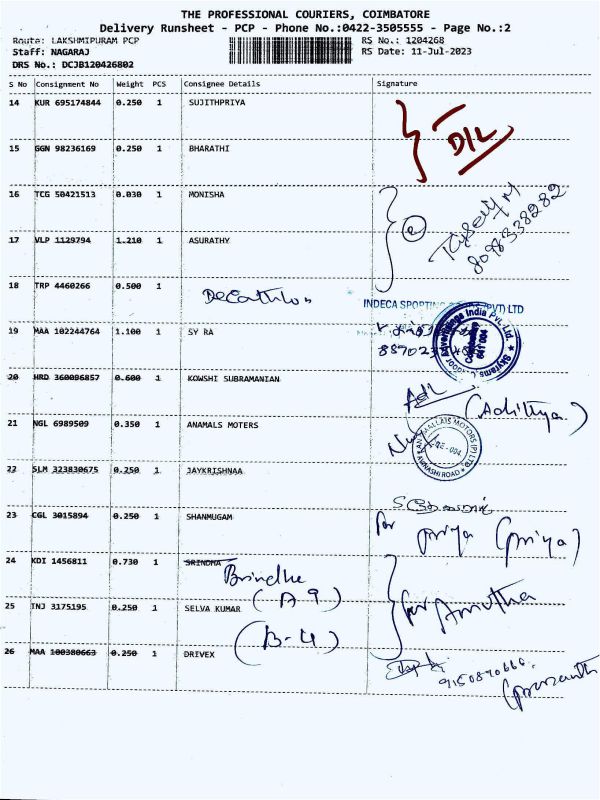 THE PROFESSIONAL COURIERS, COIMBATORE
Delivery Runsheet - PCP - Phone No.:0422-3505555 - Page No.:2
Route: LAKSHMIPURAM PCP RS No.: 1204268
Staff: NAGARAJ RS Date: 11-Jul-2023
DRS No.: DCJB120426802
S No Consignment No Weight PCS Consignee Details Signature
14 KUR 695174844 0.250 1 SUJITHPRIYA
D/L
15 GGN 98236169 0.250 1 BHARATHI
16 TCG 50421513 0.030 1 MONISHA
8098338282
17 VLP 1129794 1.210 1 ASURATHY
18 TRP 4460266 0.500 1
Decathlon
INDECA SPORTING (PVT) LTD
19 MAA 102244764 1.100 1 SY RA
Advertisings India Pvt. Ltd.
641 004
20 HRD 360096857 0.600 1 KOWSHI SUBRAMANIAN
(Adithya)
21 NGL 6989509 0.350 1 ANAMALS MOTERS
ANAMALLAIS MOTORS (P) LTD
AVINASHI ROAD
22 SLM 323830675 0.250 1 JAYKRISHNAA
23 CGL 3015894 0.250 1 SHANMUGAM
for priya (priya)
24 KDI 1456811 0.730 1 SRINDHA
Brindha
(A 9)
for Amutha
25 INJ 3175195 0.250 1 SELVA KUMAR
(B-4)
26 MAA 100380663 0.250 1 DRIVEX
9150890666.
(prasanth